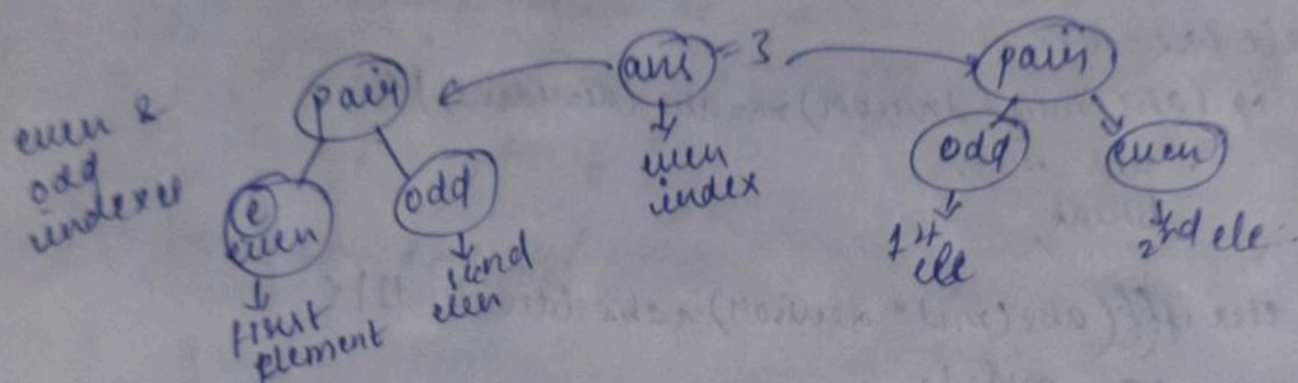 even &
odd
indexes
pair
e
even
first
element
odd
second
elem
ans = 3
even
index
pair
odd
1st
ele
even
2nd ele